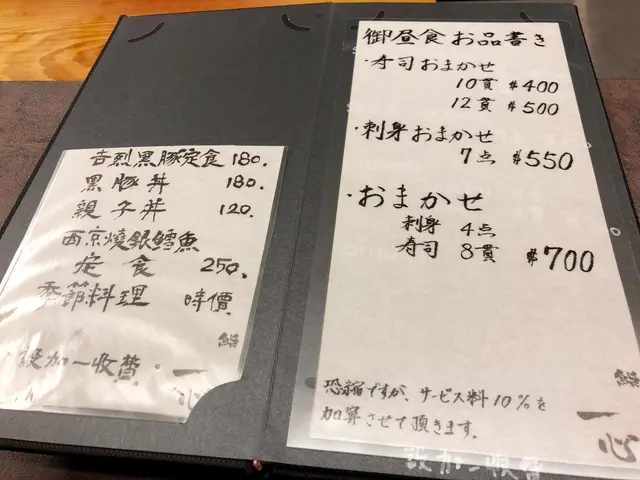 吉烈黒豚定食 180.
黒豚丼 180.
親子丼 120.
西京燒銀鱈魚
定食 250.
季節料理 時價
鮨
設加一收費
一心
御昼食お品書き
・寿司おまかせ
10貫 $400
12貫 $500
・刺身おまかせ
7点 $550
・おまかせ
刺身 4点
寿司 8貫 $700
恐縮ですが、サービス料10%を
加算させて頂きます。
鮨
一心
設加一收